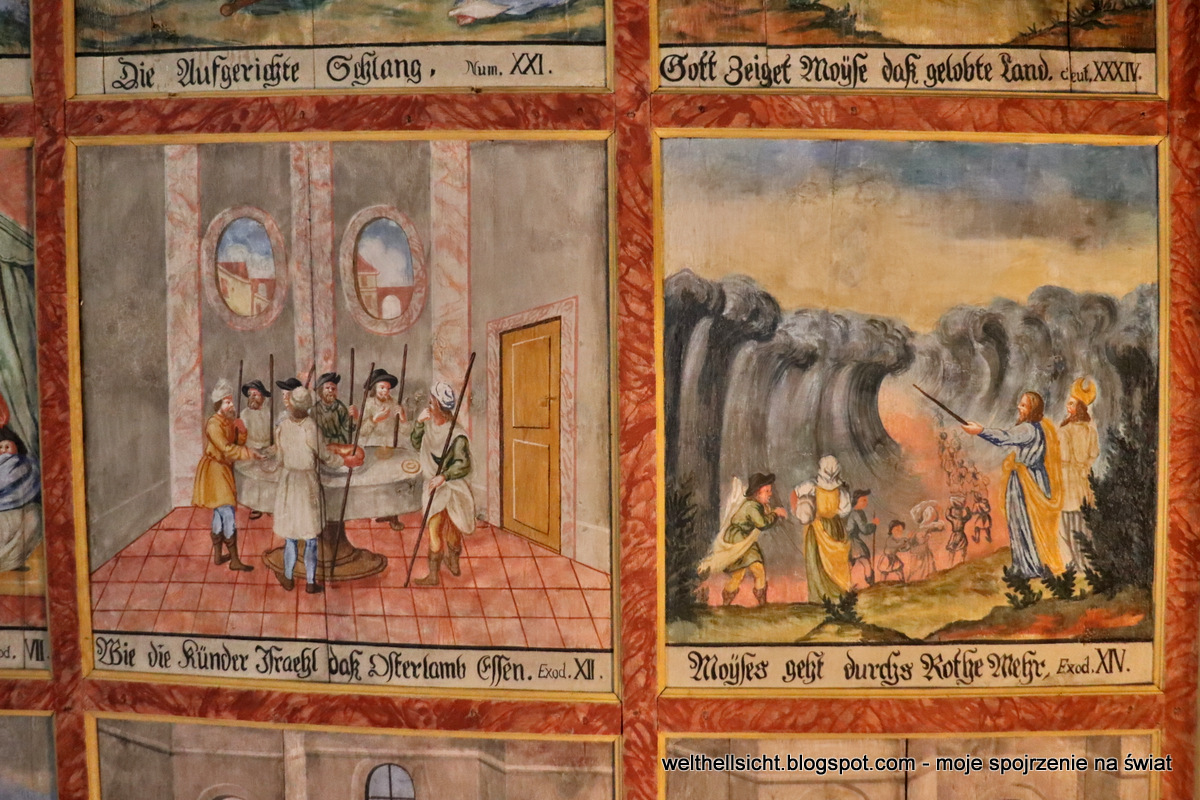 Die Aufgerichte Schlang, Num. XXI.
Gott Zeiget Moÿse daß gelobte Land. deut. XXXIV.
od. VII
Wie die Künder Israehl daß Osterlamb Essen. Exod. XII.
Moÿses geht durchs Rothe Mehr, Exod. XIV.
welthellsicht.blogspot.com - moje spojrzenie na świat